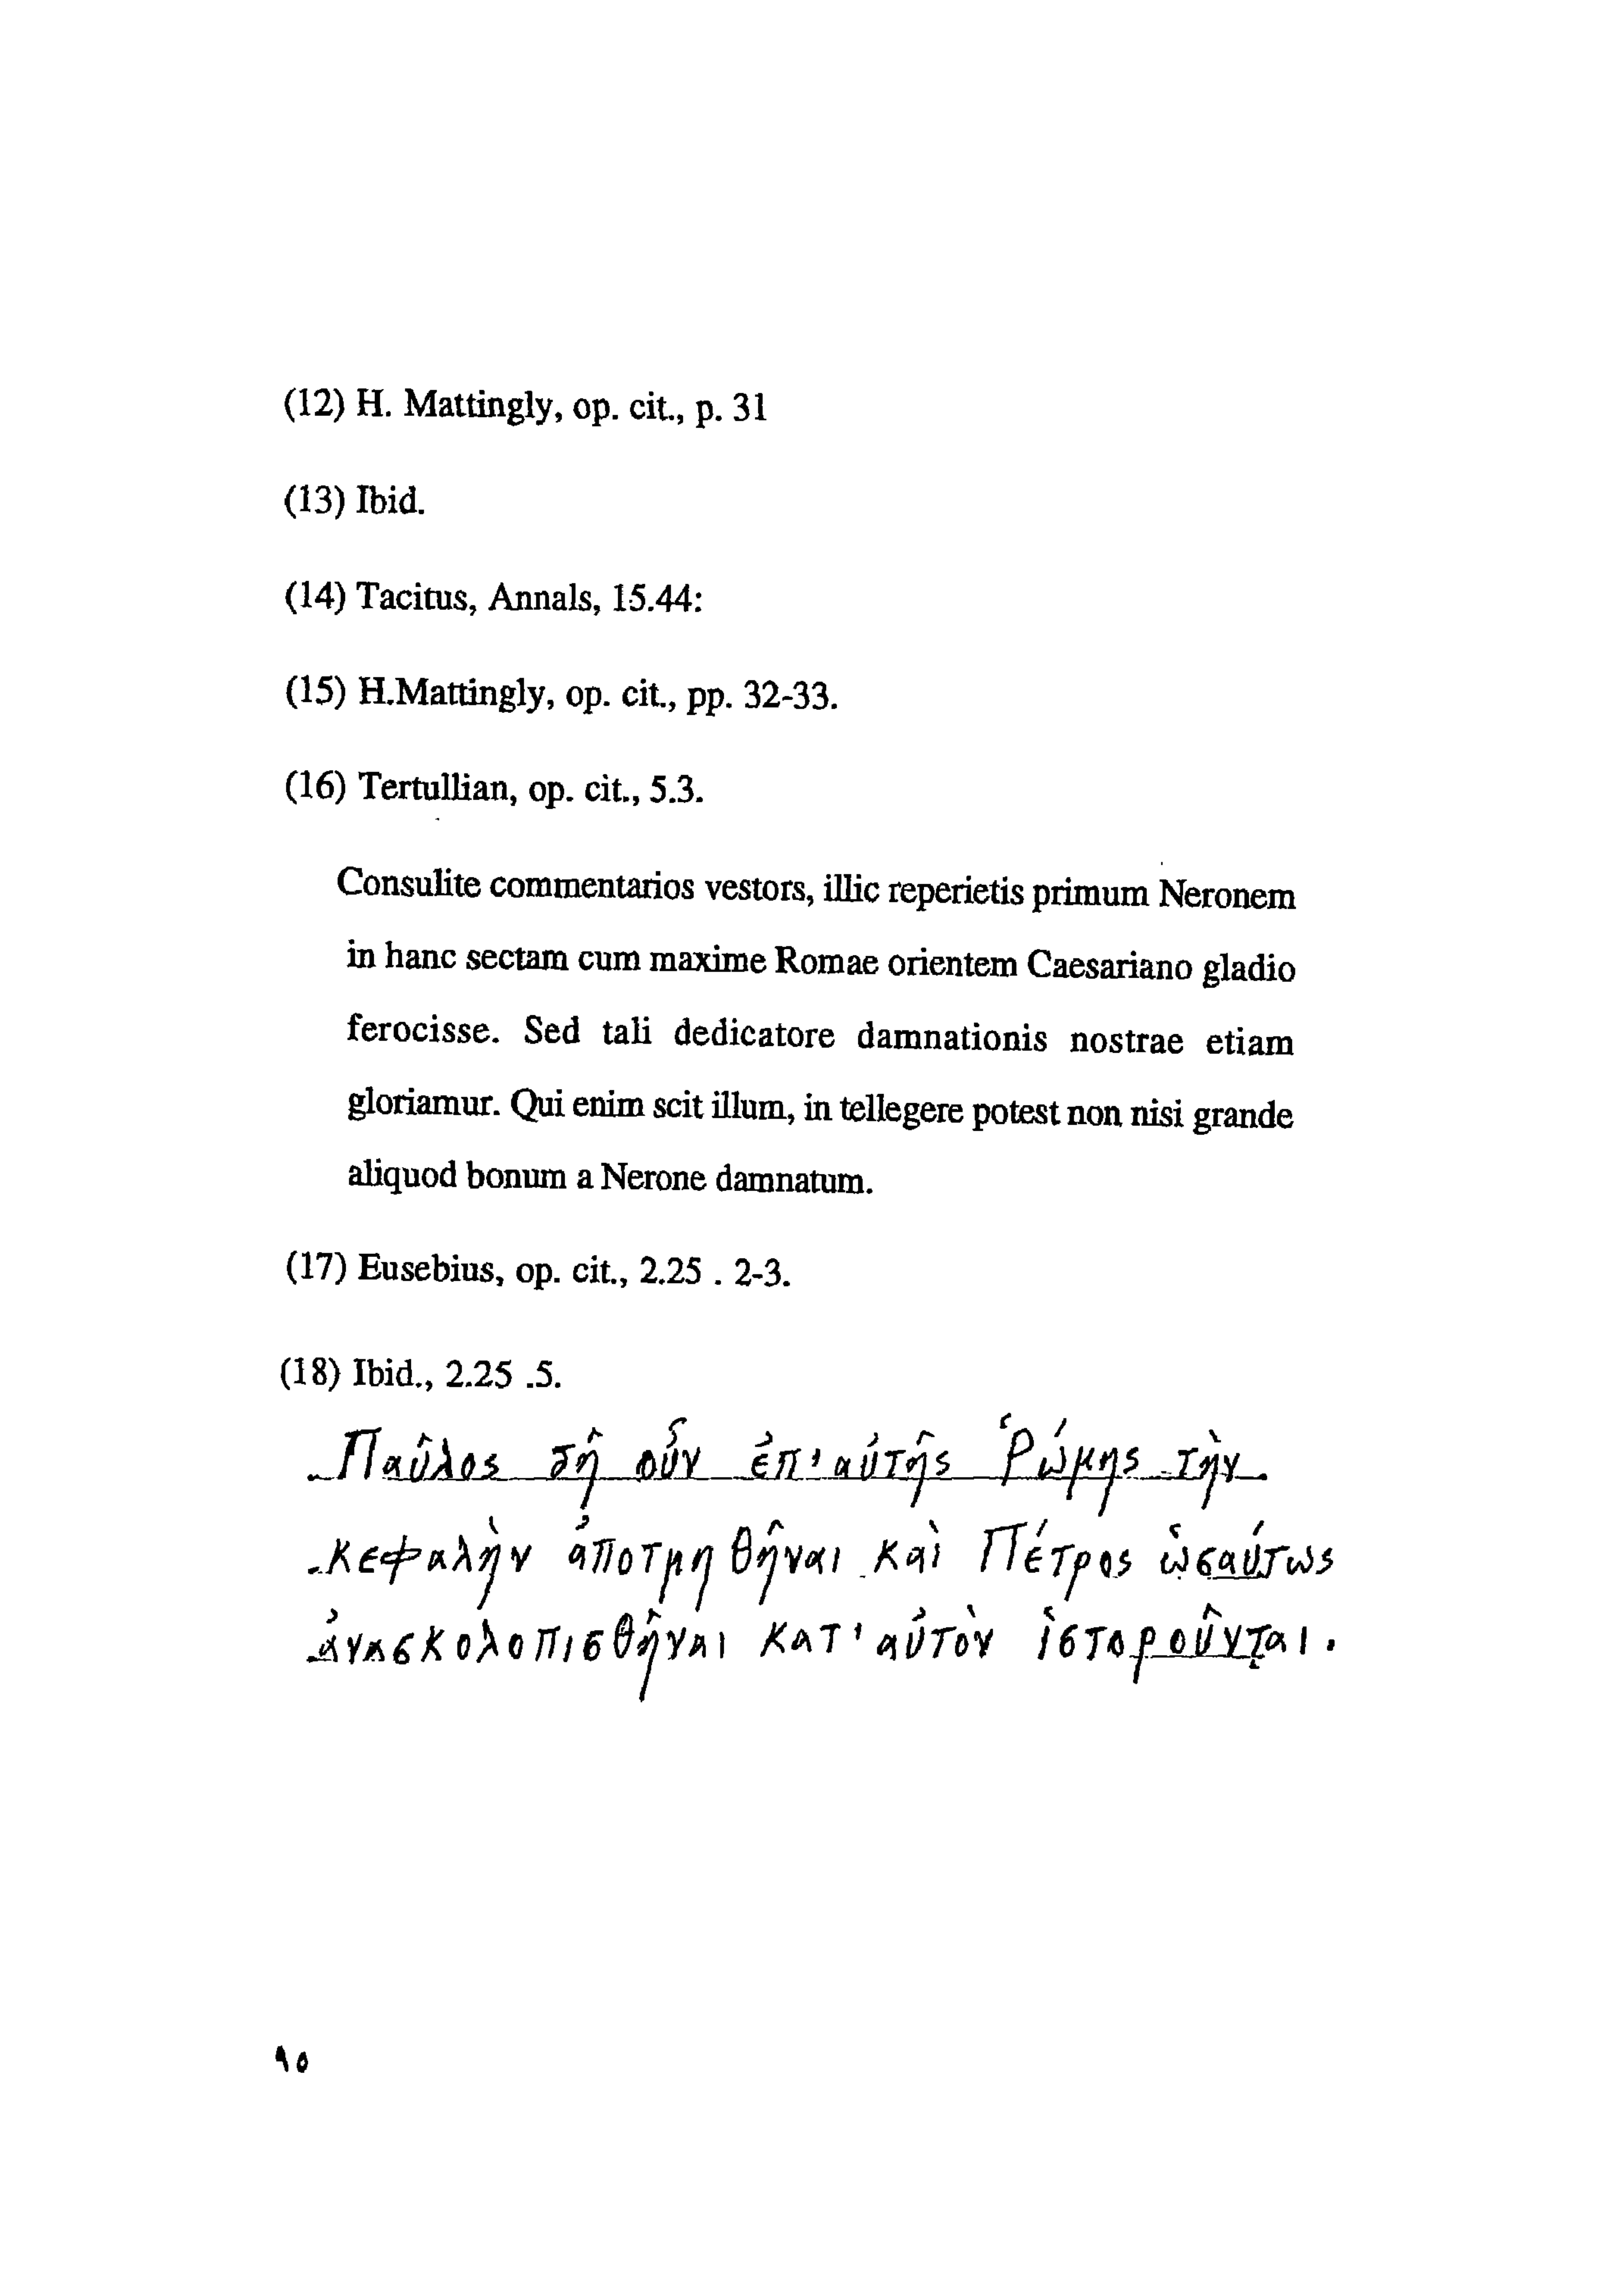 (12) H. Mattingly, op. cit., p. 31
(13) Ibid.
(14) Tacitus, Annals, 15.44:
(15) H.Mattingly, op. cit., pp. 32-33.
(16) Tertullian, op. cit., 5.3.
Consulite commentarios vestors, illic reperietis primum Neronem
in hanc sectam cum maxime Romae orientem Caesariano gladio
ferocisse. Sed tali dedicatore damnationis nostrae etiam
gloriamur. Qui enim scit illum, in tellegere potest non nisi grande
aliquod bonum a Nerone damnatum.
(17) Eusebius, op. cit., 2.25 . 2-3.
(18) Ibid., 2.25 .5.
Παῦλος δῆ οὖν ἐπ' αὐτῆς Ῥώμης τὴν
κεφαλὴν ἀποτμηθῆναι καὶ Πέτρος ὡσαύτως
ἀνασκολοπισθῆναι κατ' αὐτὸν ἱστοροῦνται.
٩٥